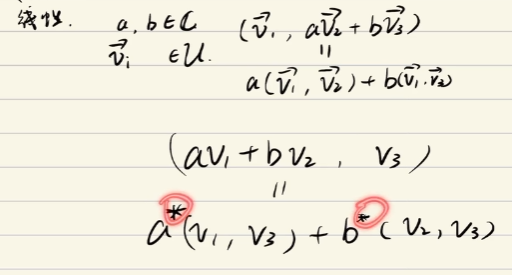 线性. a, b ∈ ℂ (v⃗₁, av⃗₂ + bv⃗₃)
v⃗ᵢ ∈ U. ||
a(v⃗₁, v⃗₂) + b(v⃗₁, v⃗₃)
(av₁ + bv₂, v₃)
||
a*(v₁, v₃) + b*(v₂, v₃)